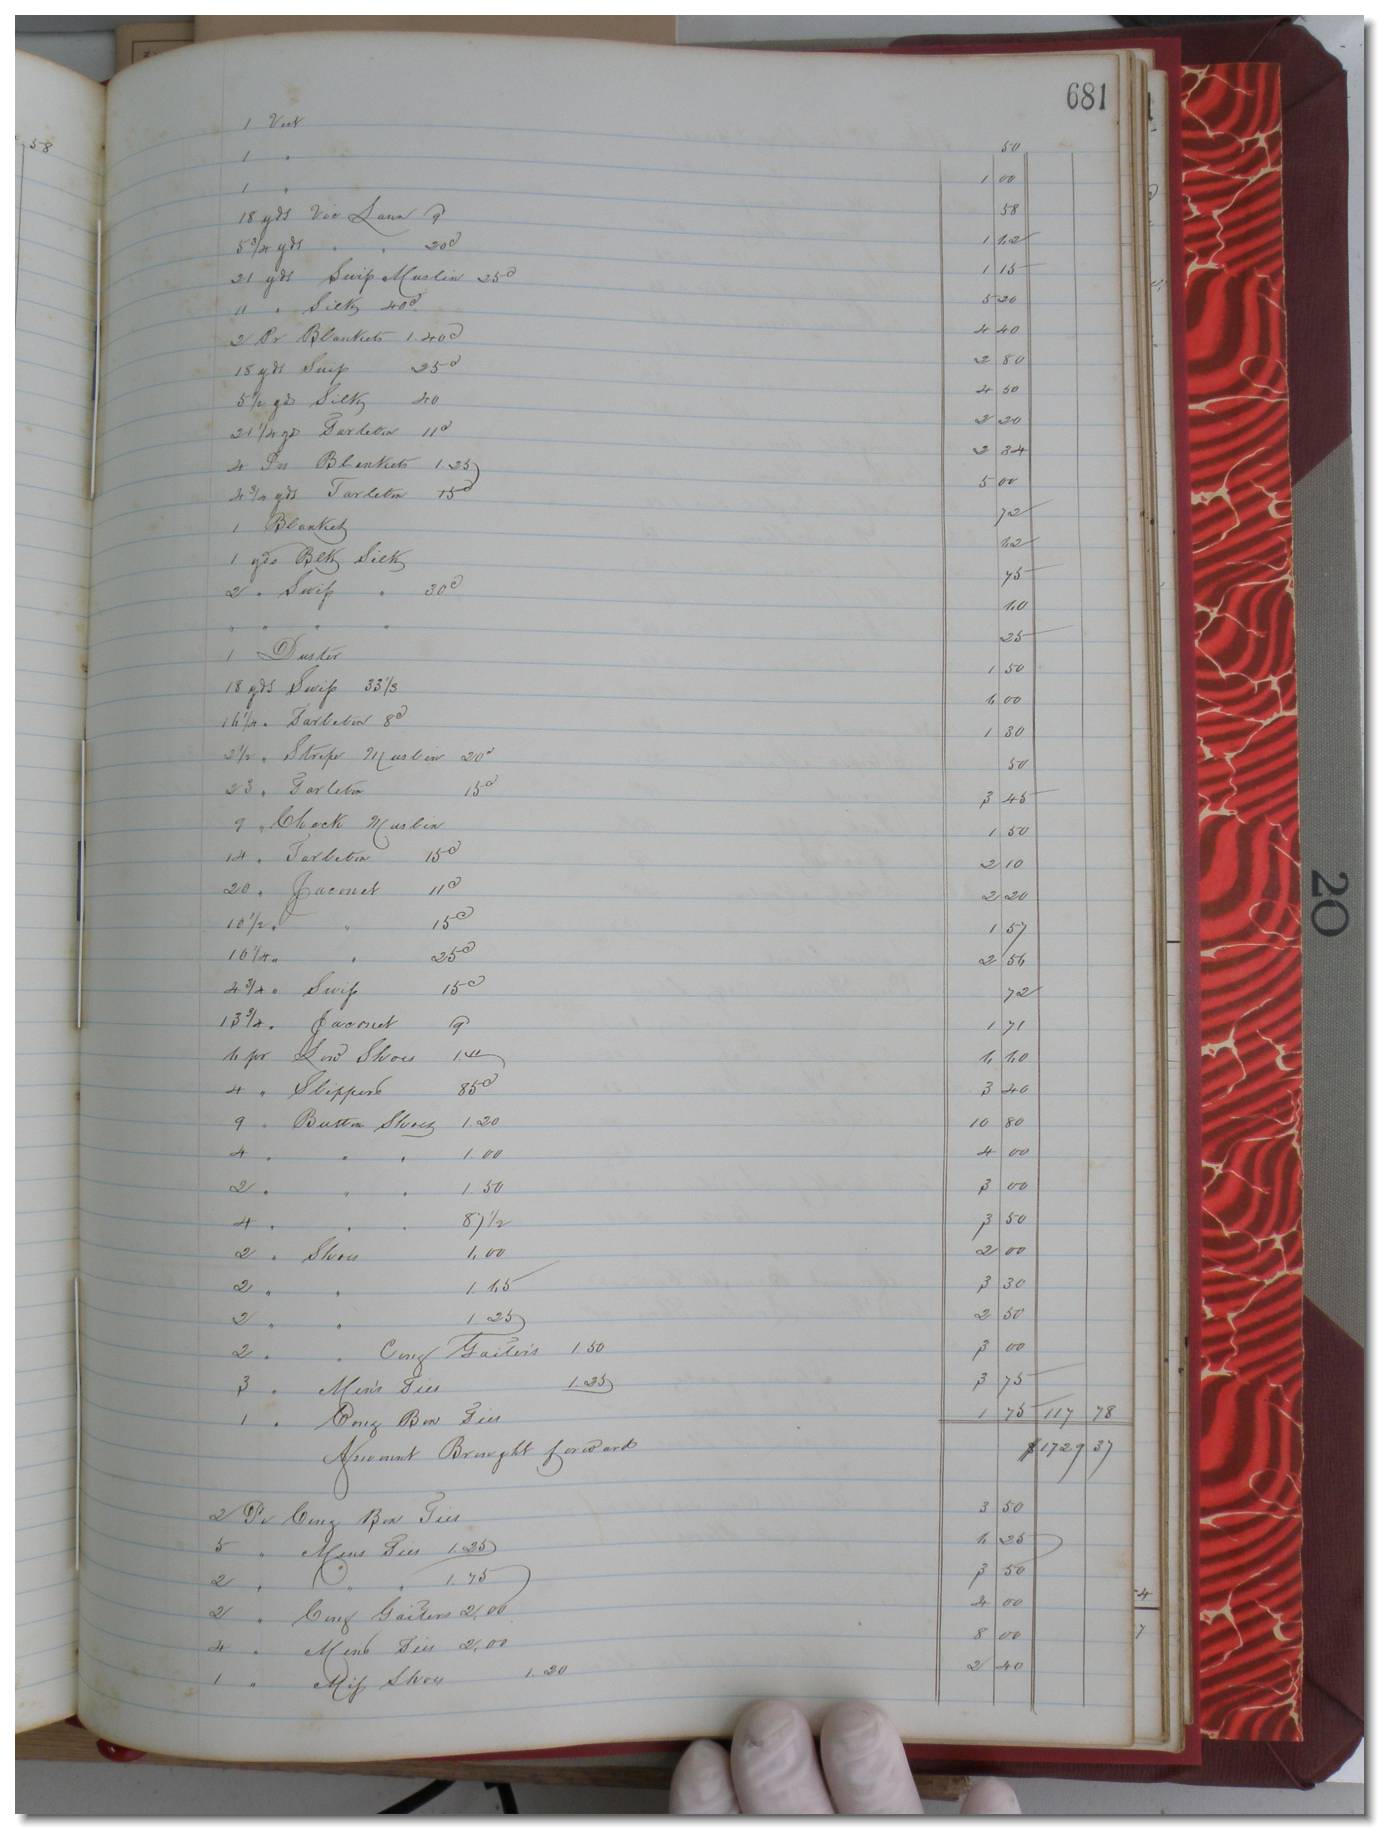 681
58
1 Vest 50
1 " 1 00
1 " 58
18 yds Vic Lawn 9 1 62
5 3/4 yds " " 20c 1 15
21 yds Swiss Muslin 25c 5 20
11 " Silk 40c 4 40
2 Pr Blankets 1.40c 2 80
18 yds Swiss 25c 4 50
5 1/2 yds Silk 40 2 20
21 1/4 yds Tarleton 11c 2 34
4 Prs Blankets 1.25 5 00
4 3/4 yds Tarleton 15c 72
1 Blanket 62
1 yds Blk Silk 75
2 " Swiss " 30c 60
" " " " 25
1 Duster 1 50
18 yds Swiss 33 1/3 6 00
16 1/4 " Tarleton 8c 1 30
2 1/2 " Stripe Muslin 20c 50
23 " Tarleton 15c 3 45
9 " Check Muslin 1 50
14 " Tarleton 15c 2 10
20 " Jaconet 11c 2 20
10 1/2 " " 15c 1 57
10 1/4 " " 25c 2 56
4 3/4 " Swiss 15c 72
13 3/4 " Jaconet 9 1 71
6 pr Low Shoes 1 10 6 60
4 " Slippers 85c 3 40
9 " Button Shoes 1.20 10 80
4 " " " 1.00 4 00
2 " " " 1.50 3 00
4 " " " 87 1/2 3 50
2 " Shoes 1.00 2 00
2 " " 1.65 3 30
2 " " 1.25 2 50
2 " " Cong Gaiters 1.50 3 00
3 " Men's Ties 1.25 3 75
1 " Cong Box Ties 1 75 117 78
Amount Brought forward $1729 37
2 Pr Cong Box Ties 3 50
5 " Mens Ties 1.25 6 25
2 " " " 1.75 3 50
2 " Cong Gaiters 2.00 4 00
4 " Mens Ties 2.00 8 00
1 " Miss Shoes 1.20 2 40
20